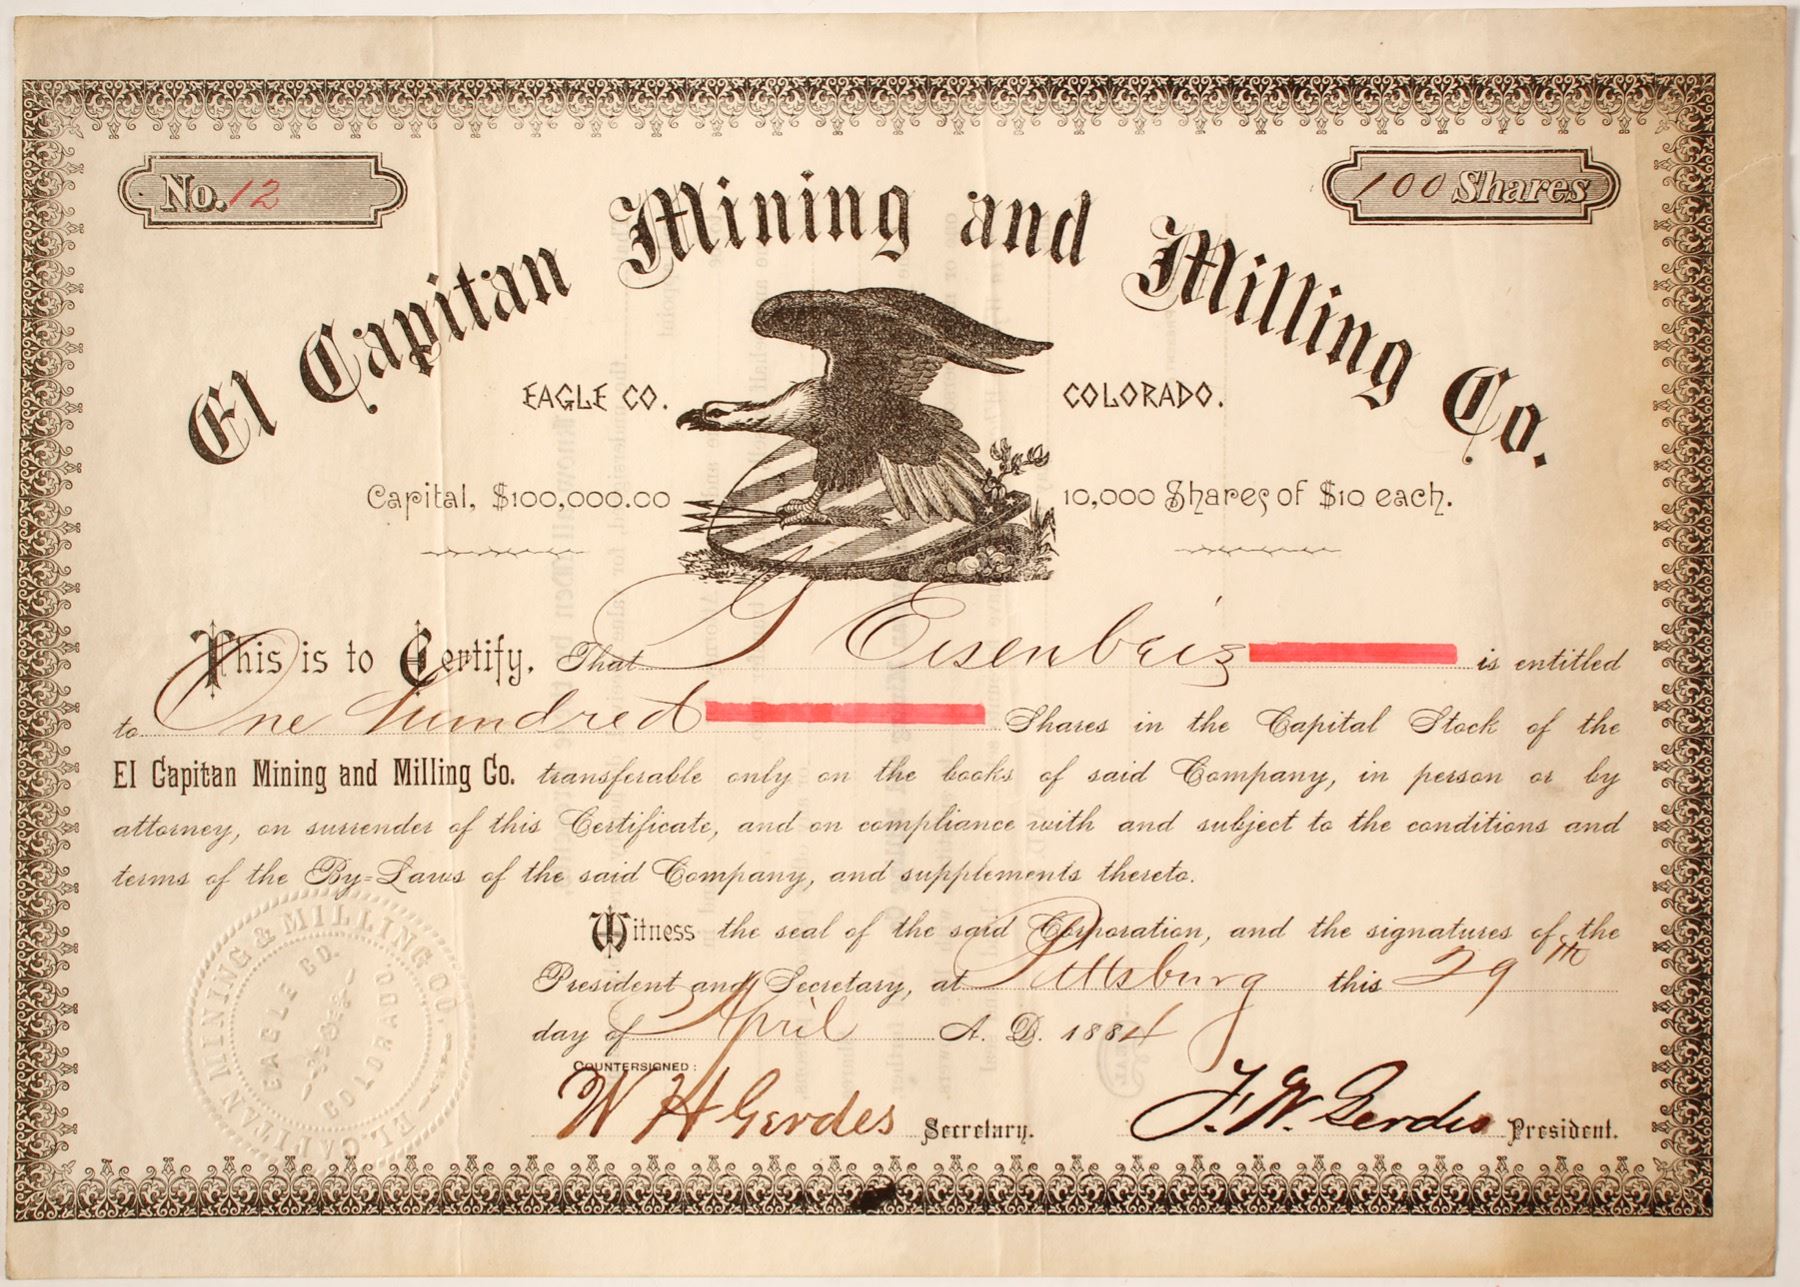 No. 12
100 Shares
El Capitan Mining and Milling Co.
EAGLE CO. COLORADO.
Capital, $100,000.00 10,000 Shares of $10 each.
This is to Certify, That G Eisenbeis is entitled
to One hundred Shares in the Capital Stock of the
El Capitan Mining and Milling Co. transferable only on the books of said Company, in person or by
attorney, on surrender of this Certificate, and on compliance with and subject to the conditions and
terms of the By=Laws of the said Company, and supplements thereto.
Witness the seal of the said Corporation, and the signatures of the
President and Secretary, at Pittsburg this 29th
day of April A. D. 1884
COUNTERSIGNED:
W H Gerdes Secretary.
F. W. Gerdes President.
EL CAPITAN MINING & MILLING CO.
EAGLE CO. COLORADO